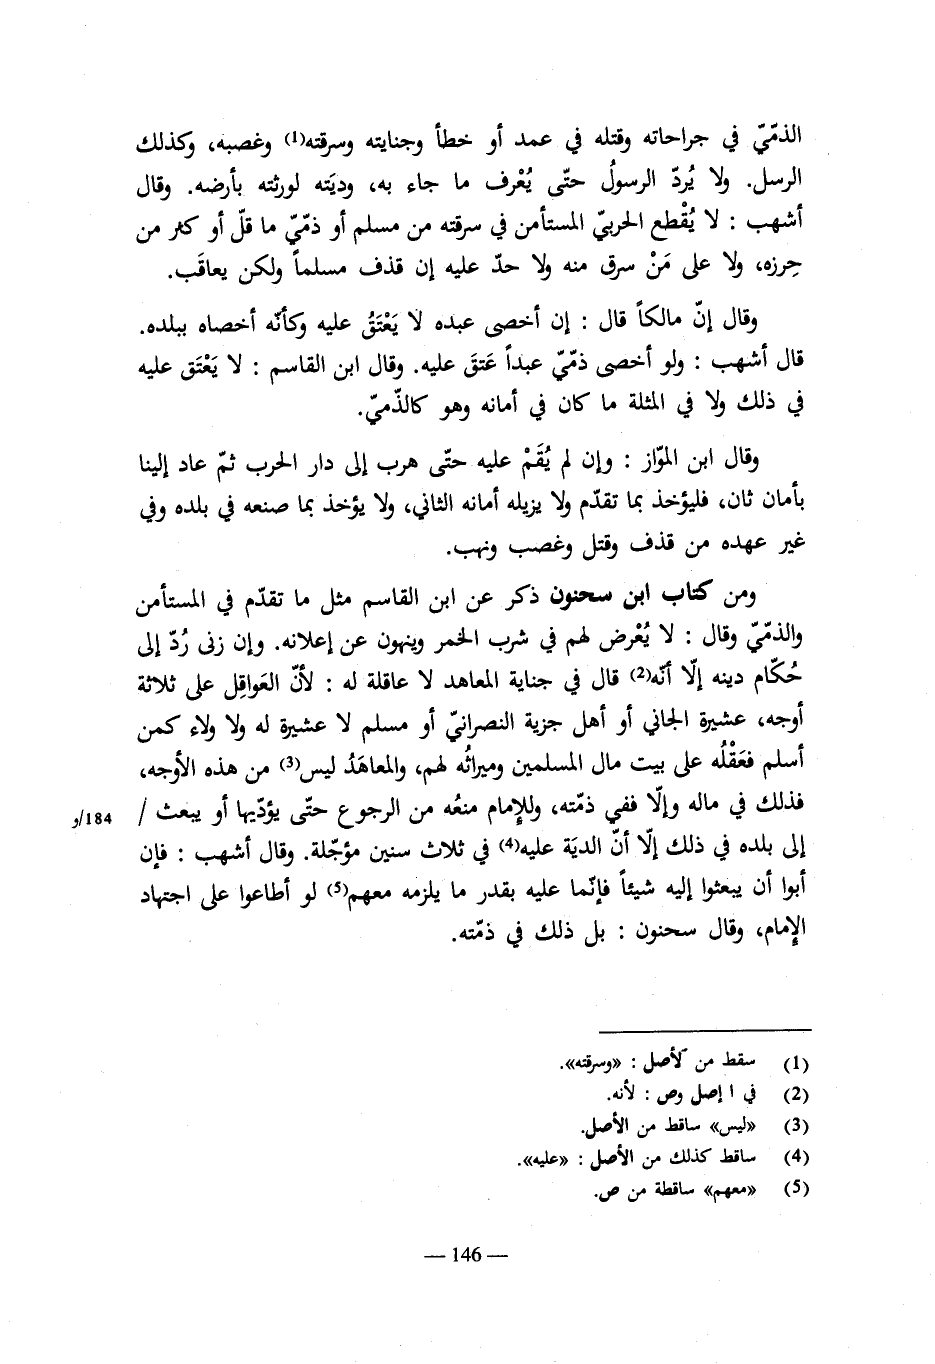 الذمّيّ في جراحاته وقتله في عمد أو خطأ وجنايته وسرقته(1) وغصبه، وكذلك
الرسل. ولا يُردّ الرسولُ حتّى يُعْرف ما جاء به، وديَته لورثته بأرضه. وقال
أشهب : لا يُقْطع الحربيّ المستأمن في سرقته من مسلم أو ذمّيّ ما قلّ أو كثر من
حِرزه، ولا على مَنْ سرق منه ولا حدّ عليه إن قذف مسلماً ولكن يعاقَب.
وقال إنّ مالكاً قال : إن أخصى عبده لا يَعْتَقُ عليه وكأنّه أخصاه ببلده.
قال أشهب : ولو أخصى ذمّيّ عبداً عَتقَ عليه. وقال ابن القاسم : لا يَعْتَق عليه
في ذلك ولا في المثلة ما كان في أمانه وهو كالذّميّ.
وقال ابن الموّاز : وإن لم يُقَمْ عليه حتّى هرب إلى دار الحرب ثمّ عاد إلينا
بأمان ثان، فليؤخذ بما تقدّم ولا يزيله أمانه الثاني، ولا يؤخذ بما صنعه في بلده وفي
غير عهده من قذف وقتل وغصب ونهب.
ومن كتاب ابن سحنون ذكر عن ابن القاسم مثل ما تقدّم في المستأمن
والذمّيّ وقال : لا يُعْرض لهم في شرب الخمر وينهون عن إعلانه. وإن زنى رُدّ إلى
حُكّام دينه إلّا أنّه(2) قال في جناية المعاهد لا عاقلة له : لأنّ العَواقِل على ثلاثة
أوجه، عشيرة الجاني أو أهل جزية النصرانيّ أو مسلم لا عشيرة له ولا ولاء كمن
أسلم فعَقْلُه على بيت مال المسلمين وميراثُه لهم، والمعاهَدُ ليس(3) من هذه الأوجه،
فذلك في ماله وإلّا ففي ذمّته، وللإمام منعُه من الرجوع حتّى يؤدّيها أو يبعث / 184/و
إلى بلده في ذلك إلّا أنّ الديَة عليه(4) في ثلاث سنين مؤجّلة. وقال أشهب : فإن
أبوا أن يبعثوا إليه شيئاً فإنّما عليه بقدر ما يلزمه معهم(5) لو أطاعوا على اجتهاد
الإمام، وقال سحنون : بل ذلك في ذمّته.
(1) سقط من كأصل : «وسرقته».
(2) في ا إصل وص : لأنه.
(3) «ليس» ساقط من الأصل.
(4) ساقط كذلك من الأصل : «عليه».
(5) «معهم» ساقطة من ص.
— 146 —